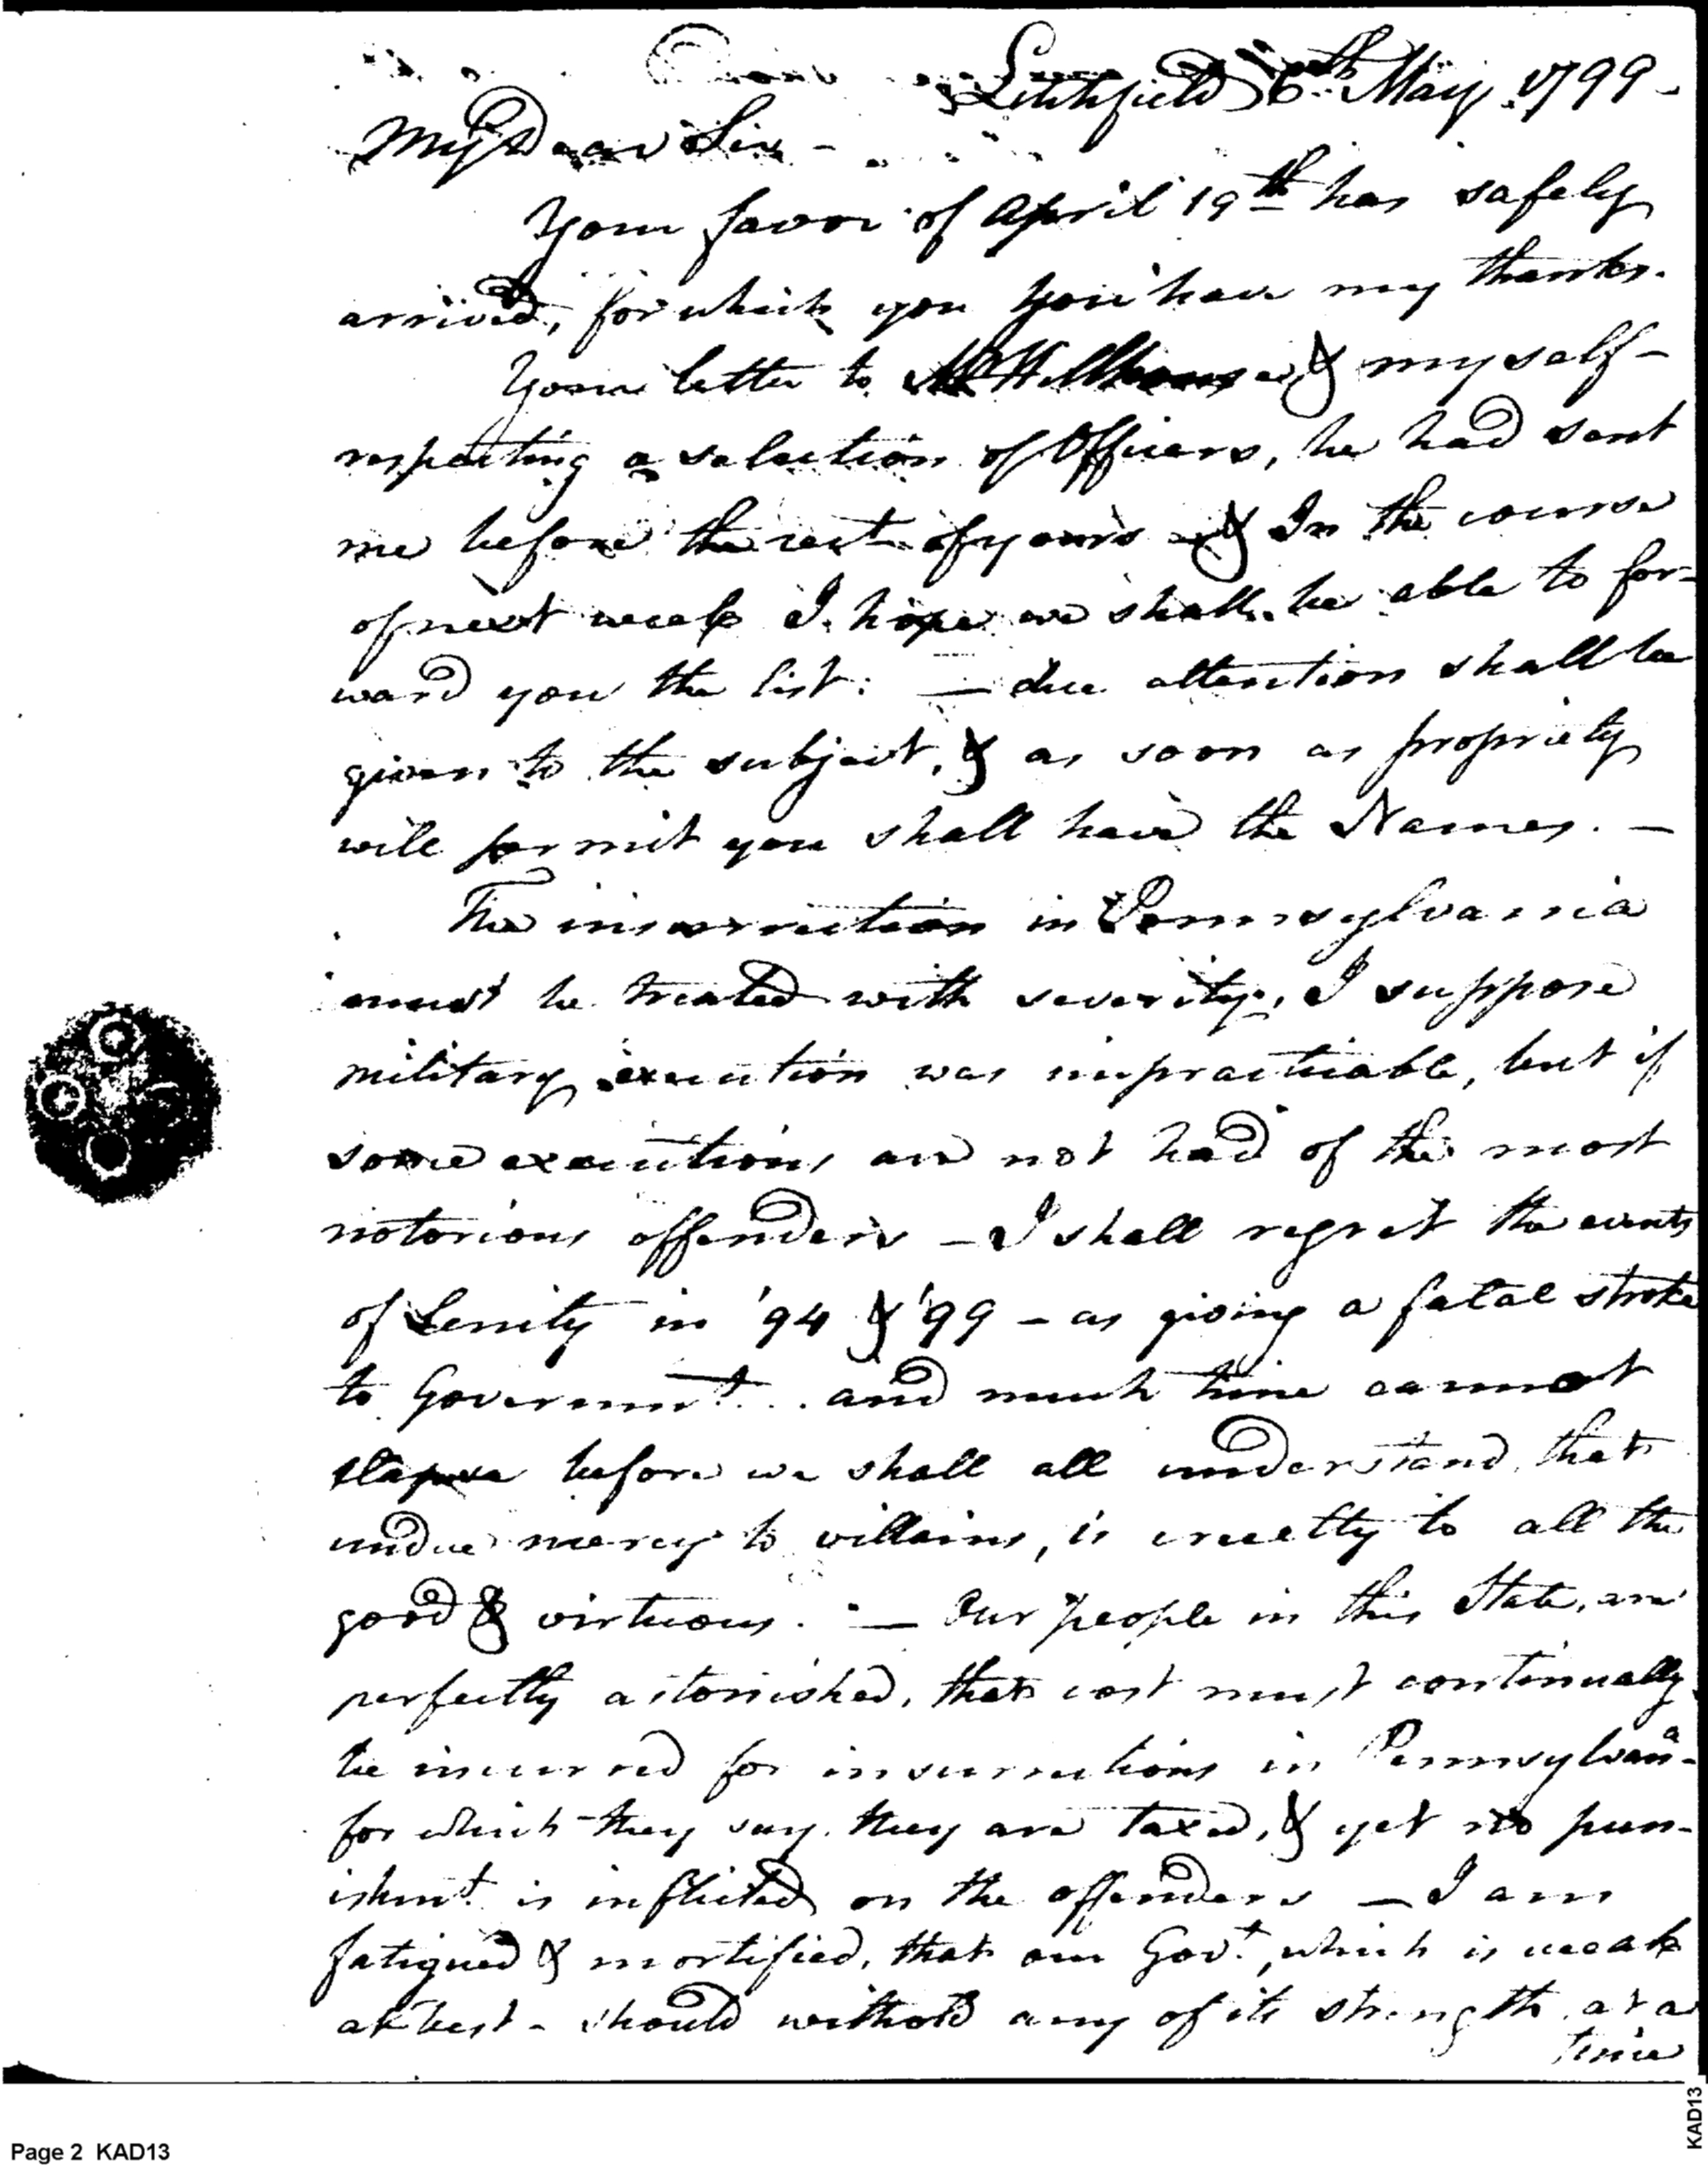 Litchfield 6th May 1799 -
My Dear Sir -
Your favor of April 19th has safely
arrived, for which you you have my thanks.
Your letter to Mr Hillhouse & myself -
respecting a selection of Officers, he had sent
me before the rect of yours & In the course
of next week I hope we shall be able to for-
ward you the list: — due attention shall be
given to the subject, & as soon as propriety
will permit you shall have the Names. —
The insurrection in Pennsylvania
must be treated with severity, I suppose
military execution was impracticable, but if
some executions are not had of the most
notorious offenders - I shall regret the events
of Lenity in '94 & '99 - as giving a fatal stroke
to Governmt. . and much time cannot
elapse before we shall all understand, that
undue mercy to villains, is cruelty to all the
good & virtuous. — Our people in this State, are
perfectly astonished, that cost must continually
be incurred for insurrections in Pennsylvana -
for which they say they are taxed, & yet no pun-
ishmt. is inflicted on the offenders — I am
fatigued & mortified, that our Govt., which is weak
at best - should withold any of its strength at a
time
Page 2 KAD13
KAD13